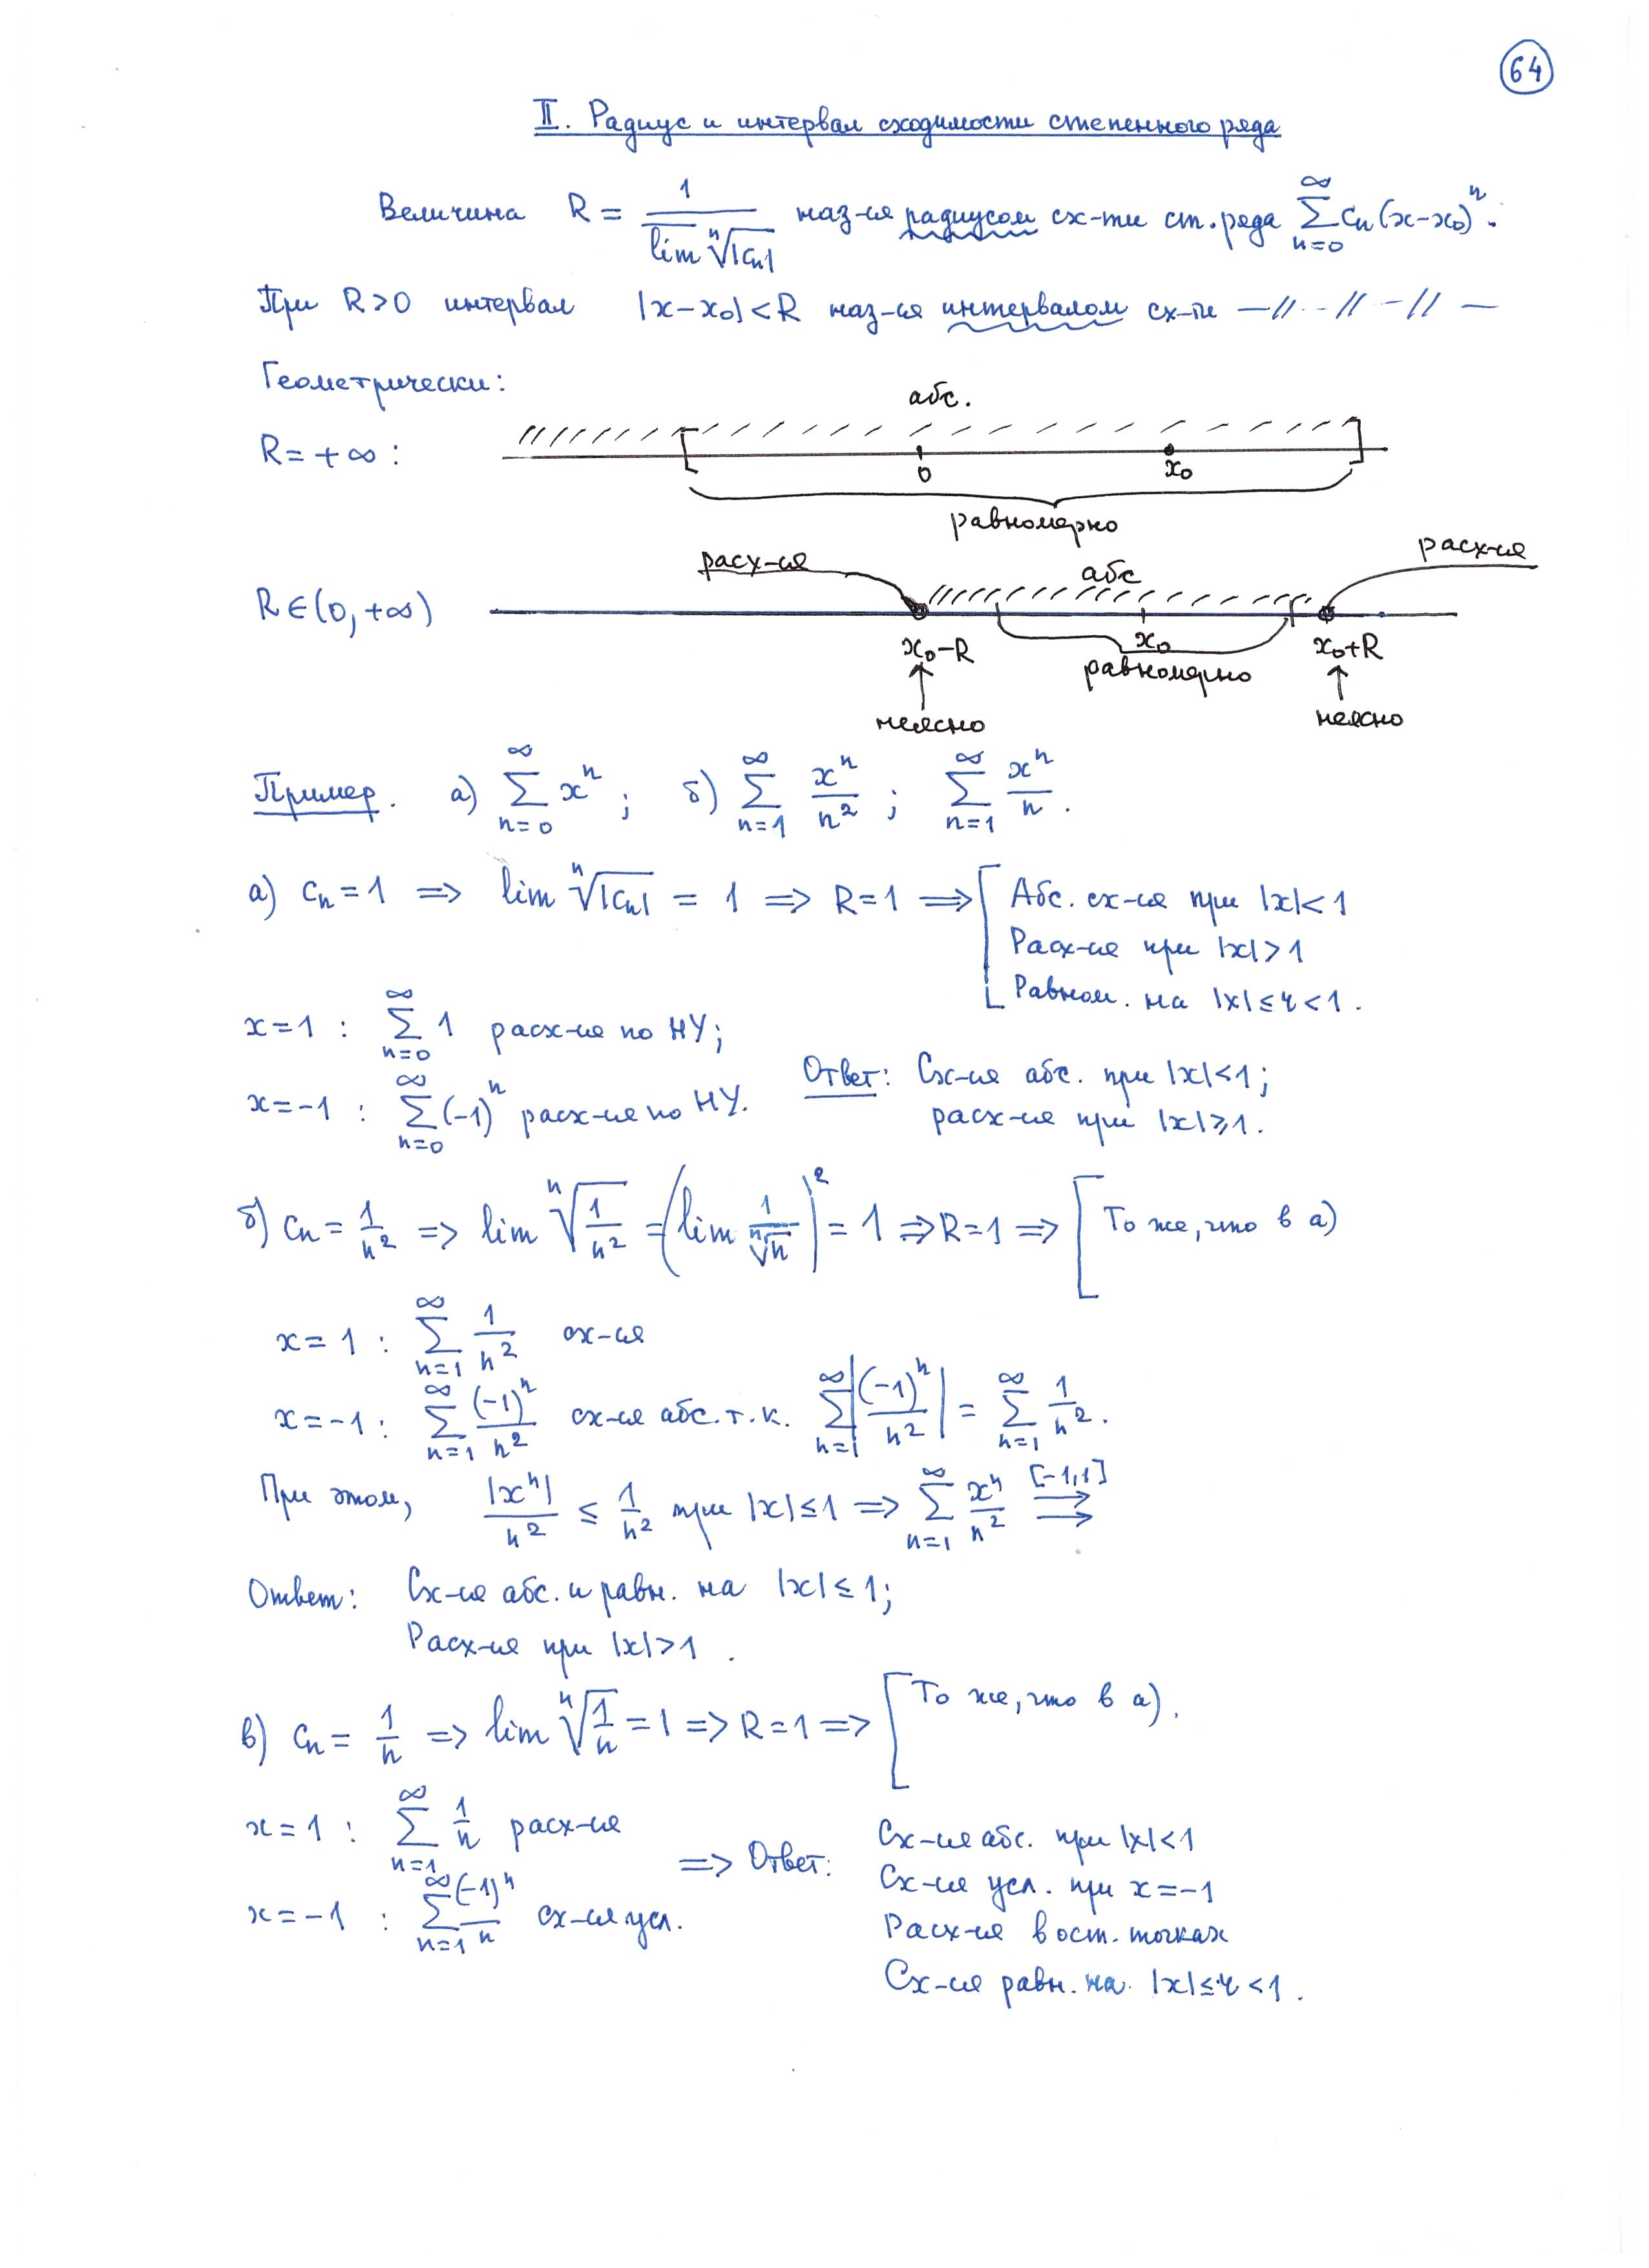 64
II. Радиус и интервал сходимости степенного ряда
Величина R = 1 / \overline{lim} ⁿ√|cₙ| наз-ся радиусом сх-ти ст. ряда ∑_{n=0}^{∞} cₙ(x-x₀)ⁿ.
При R>0 интервал |x-x₀|<R наз-ся интервалом сх-ти —//--//-//—
Геометрически:
абс.
R=+∞:
0 x₀
равномерно
расх-ся абс расх-ся
R∈(0,+∞)
x₀-R x₀ x₀+R
равномерно
неясно неясно
Пример. а) ∑_{n=0}^{∞} xⁿ; б) ∑_{n=1}^{∞} xⁿ/n²; ∑_{n=1}^{∞} xⁿ/n.
а) cₙ=1 => lim ⁿ√|cₙ| = 1 => R=1 => [ Абс. сх-ся при |x|<1
Расх-ся при |x|>1
Равном. на |x|≤r<1.
x=1 : ∑_{n=0}^{∞} 1 расх-ся по НУ;
x=-1 : ∑_{n=0}^{∞} (-1)ⁿ расх-ся по НУ.
Ответ: Сх-ся абс. при |x|<1;
расх-ся при |x|⩾1.
б) cₙ = 1/n² => lim ⁿ√(1/n²) = (lim 1/ⁿ√n)² = 1 => R=1 => [ То же, что в а)
x=1 : ∑_{n=1}^{∞} 1/n² сх-ся
x=-1 : ∑_{n=1}^{∞} (-1)ⁿ/n² сх-ся абс. т.к. ∑_{n=1}^{∞} |(-1)ⁿ/n²| = ∑_{n=1}^{∞} 1/n².
При этом, |xⁿ|/n² ≤ 1/n² при |x|≤1 => ∑_{n=1}^{∞} xⁿ/n² ⇉ [-1,1]
Ответ: Сх-ся абс. и равн. на |x|≤1;
Расх-ся при |x|>1.
в) cₙ = 1/n => lim ⁿ√(1/n) = 1 => R=1 => [ То же, что в а).
x=1 : ∑_{n=1}^{∞} 1/n расх-ся
x=-1 : ∑_{n=1}^{∞} (-1)ⁿ/n сх-ся усл.
=> Ответ: Сх-ся абс. при |x|<1
Сх-ся усл. при x=-1
Расх-ся в ост. точках
Сх-ся равн. на |x|≤r<1.